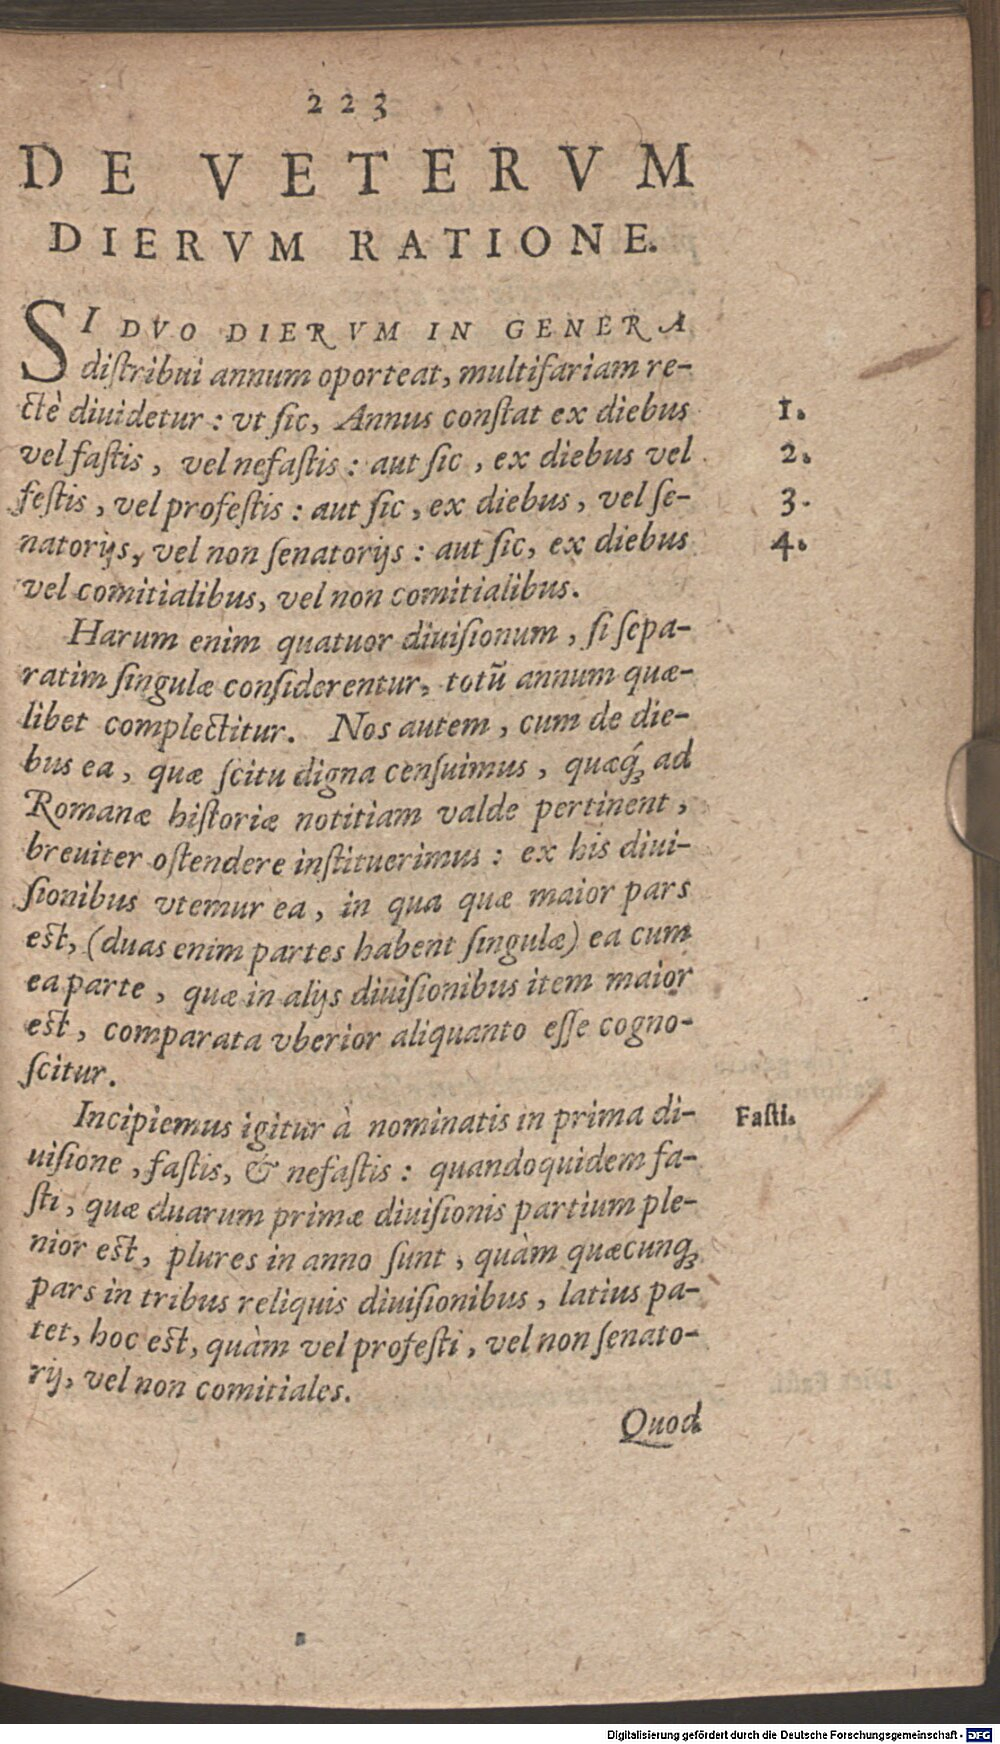 223
DE VETERVM
DIERVM RATIONE.
SI DVO DIERVM IN GENERA
distribui annum oporteat, multifariam re-
ctè diuidetur : vt sic, Annus constat ex diebus 1.
vel fastis, vel nefastis : aut sic, ex diebus vel 2.
festis, vel profestis : aut sic, ex diebus, vel se- 3.
natorijs, vel non senatorijs : aut sic, ex diebus 4.
vel comitialibus, vel non comitialibus.
Harum enim quatuor diuisionum, si sepa-
ratim singulæ considerentur, totũ annum quæ-
libet complectitur. Nos autem, cum de die-
bus ea, quæ scitu digna censuimus, quæq́ꝫ ad
Romanæ historiæ notitiam valde pertinent,
breuiter ostendere instituerimus : ex his diui-
sionibus vtemur ea, in qua quæ maior pars
est, (duas enim partes habent singulæ) ea cum
ea parte, quæ in alijs diuisionibus item maior
est, comparata vberior aliquanto esse cogno-
scitur.
Incipiemus igitur à nominatis in prima di- Fasti.
uisione, fastis, & nefastis : quandoquidem fa-
sti, quæ duarum primæ diuisionis partium ple-
nior est, plures in anno sunt, quàm quæcunqꝫ
pars in tribus reliquis diuisionibus, latius pa-
tet, hoc est, quàm vel profesti, vel non senato-
rij, vel non comitiales.
Quod
Digitalisierung gefördert durch die Deutsche Forschungsgemeinschaft - DFG